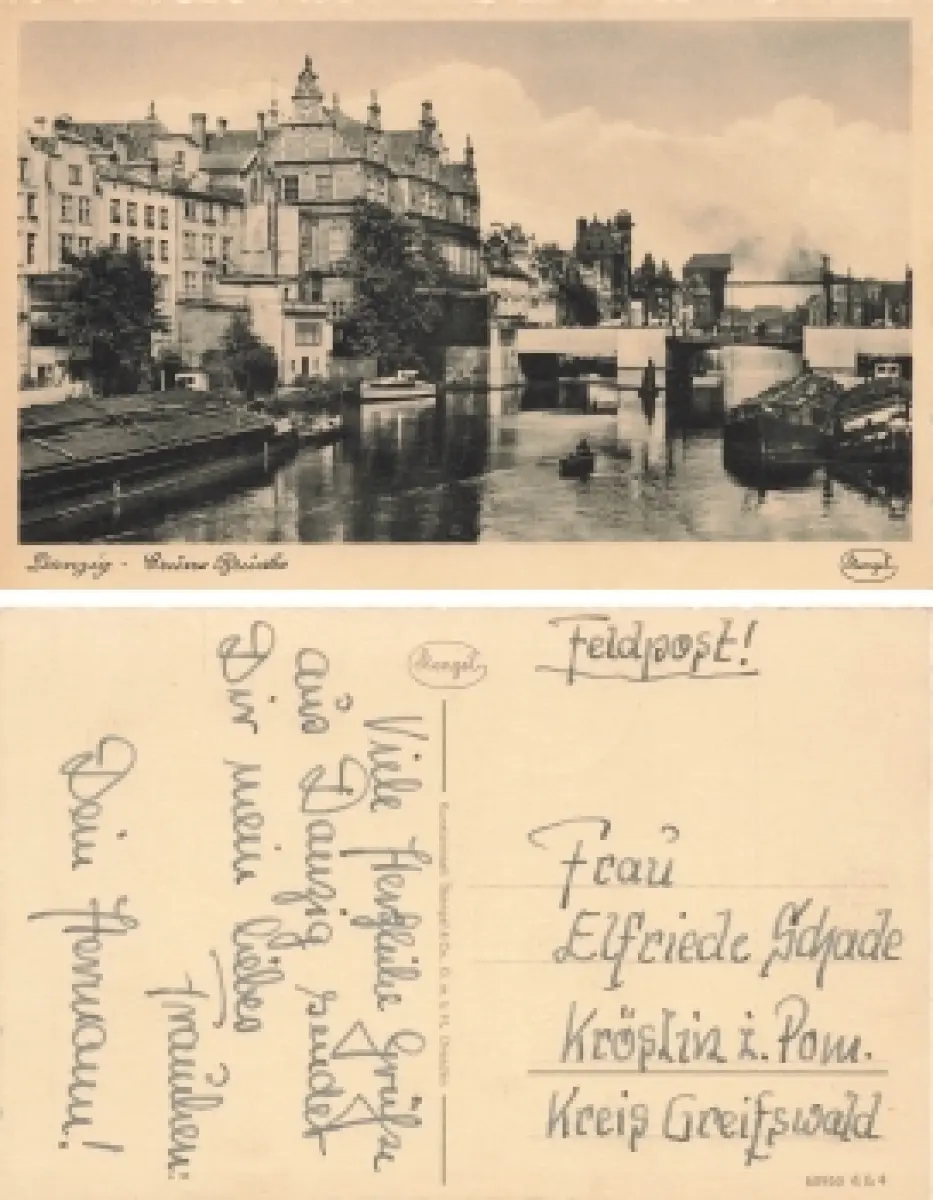 Danzig - Grüne Brücke
Stengel
Feldpost!
Stengel
Viele Herzliche Grüße
aus Danzig sendet
Dir mein liebes
Frauchen:
Dein Hermann!
Kunstanstalt Stengel & Co., G. m. b. H., Dresden
Frau
Elfriede Schade
Kröslin i. Pom.
Kreis Greifswald